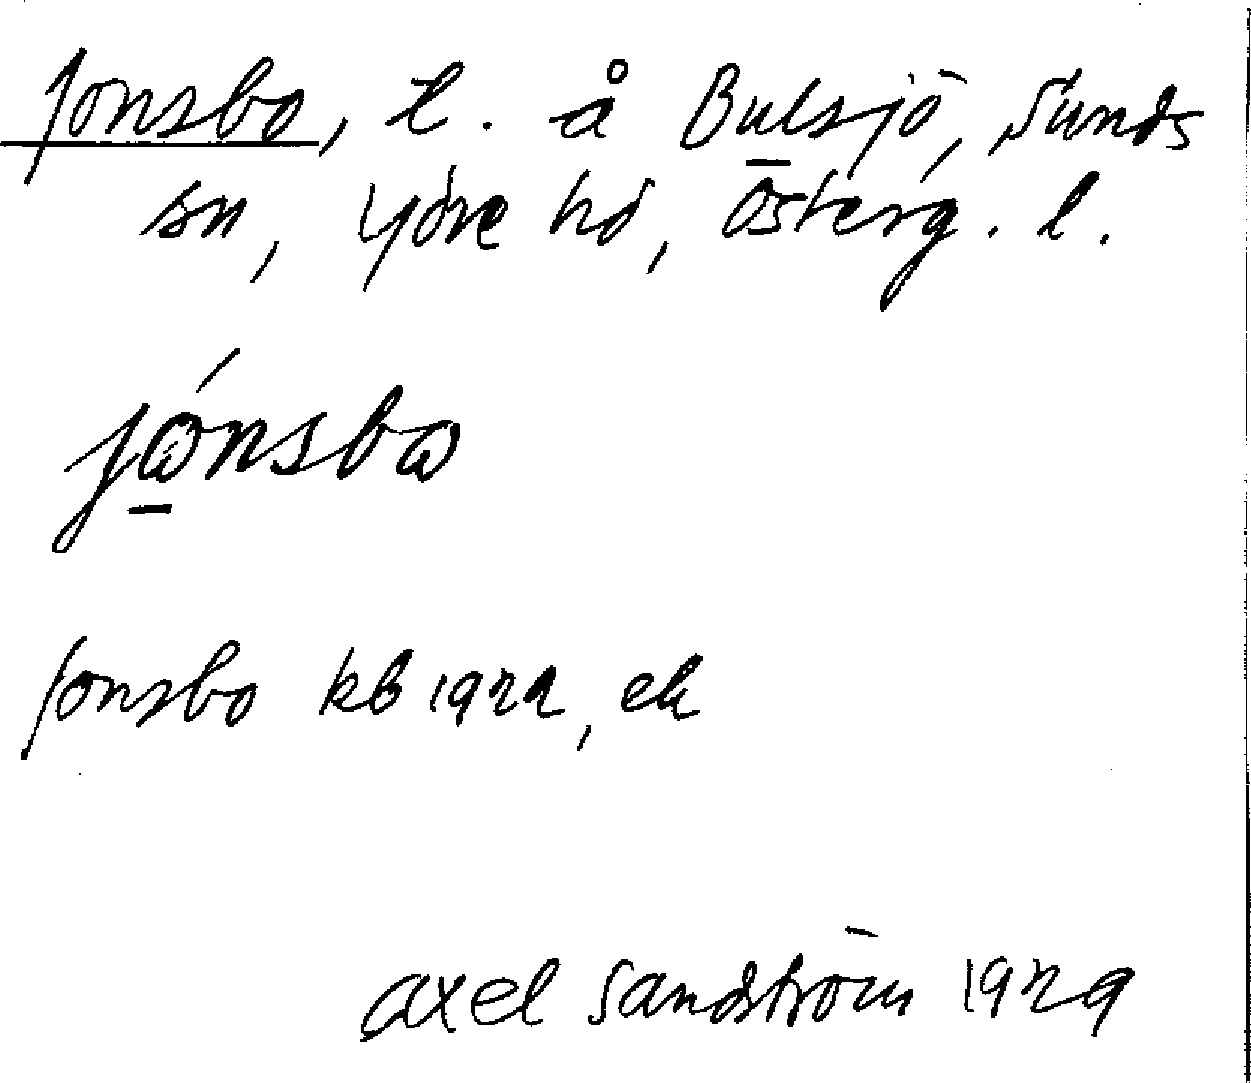 Jonsbo, t. å Bulsjö, Sunds
sn, Ydre hd, Österg. l.
jónsbo
Jonsbo kb 1929, ek
Axel Sandström 1929